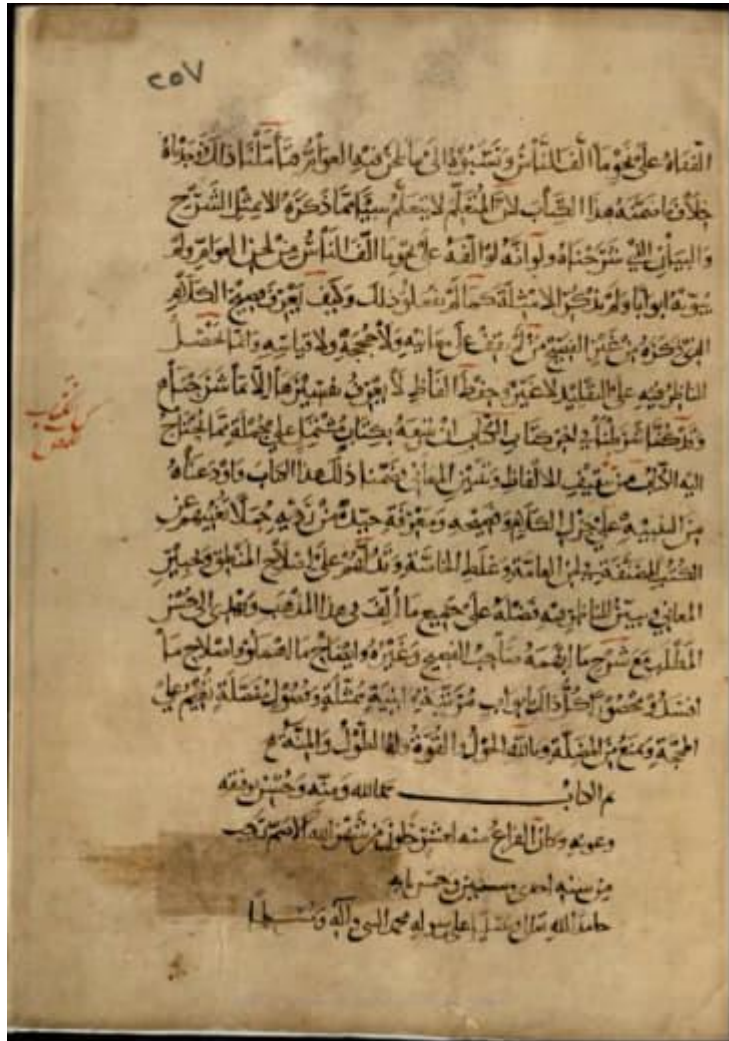 ٢٥٧
ألفناه على نحو ما ألف الناس ونسبوه الى ما تلحن فيه العوام فتأملنا ذلك فوجدناه
خلاف ما ضمنه هذا الكتاب لأن المتعلم لا يتعلم شيئا مما ذكره الا بمثل الشرح
والبيان الذي شرحناه ولو انه لو ألفه على نحو ما ألف الناس من لحن العوام ولم
يبوبه ابوابا ولم يذكر الامثلة كما لم يفعلوا ذلك وكيف يعرف فصيح الكلام
الذي ذكره من غير الفصيح من لم يقف على معانيه ولا حججه ولا قياسه وانما يحصل
الناظر فيه على التقليد لا غير وحفظ الفاظ لا يعرف تفسيرها الا ما شرحناه
وقد كنا شرطنا في اخر كتاب الكتاب ان نتبعه بكتاب يشتمل على جملة مما يحتاج
اليه الكتاب من تثقيف الالفاظ وتفسير المعاني فضمنا ذلك هذا الكتاب واودعناه
من التنبيه على جزل الكلام وفصيحه ومعرفة جيده من رديه جملا تغنيهم عن
الكتب المصنفة في لحن العامة وغلط الخاصة وتوقفهم على اصلاح المنطق وتخيير
المعاني ويبين للناظر فيه فضله على جميع ما ألف في هذا المذهب ويهدي الى حسن
المطلب مع شرح ما ابهمه صاحب الفصيح وغيره وايضاح ما اهملوه واصلاح ما
افسدوه محصورا كل ذلك بابواب مرتبة وابنية ممثلة وفصول مفصلة تقيم على
الحجة وتمنع من المضلة وبالله الحول والقوة وله الطول والمنة
تم الكتاب بحمد الله ومنه وحسن توفيقه
وعونه وكان الفراغ منه لعشر خلون من شهر الله الاصم رجب
من سنة احدى وسبعين وخمس مايه
حامدا لله تعالى ومصليا على رسوله محمد النبي وآله ومسلما
كتاب الكتاب